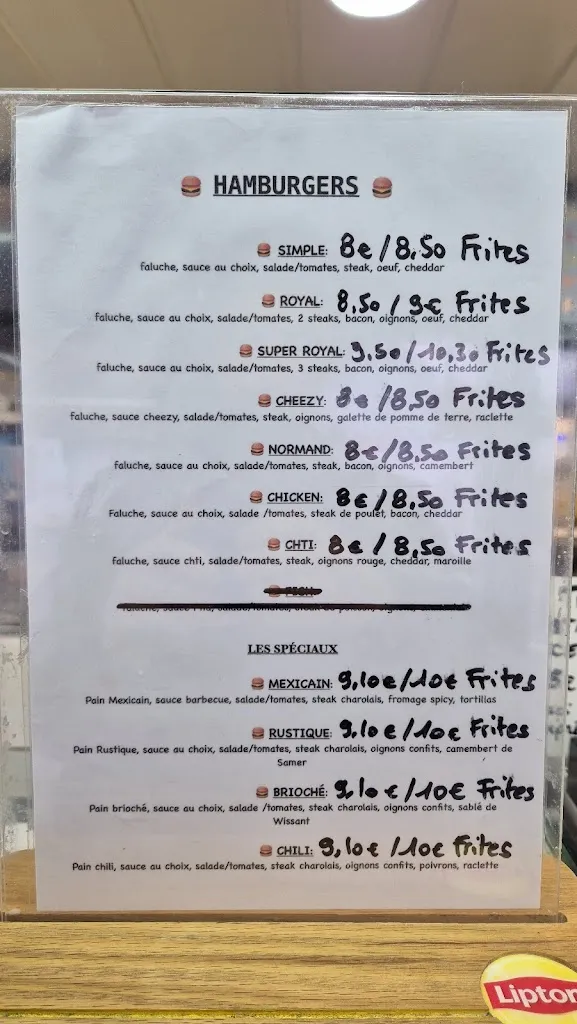 HAMBURGERS
SIMPLE: 8€/8,50 Frites
faluche, sauce au choix, salade/tomates, steak, oeuf, cheddar
ROYAL: 8,50/9€ Frites
faluche, sauce au choix, salade/tomates, 2 steaks, bacon, oignons, oeuf, cheddar
SUPER ROYAL: 9,50/10,30 Frites
faluche, sauce au choix, salade/tomates, 3 steaks, bacon, oignons, oeuf, cheddar
CHEEZY: 8€/8,50 Frites
faluche, sauce cheezy, salade/tomates, steak, oignons, galette de pomme de terre, raclette
NORMAND: 8€/8,50 Frites
faluche, sauce au choix, salade/tomates, steak, bacon, oignons, camembert
CHICKEN: 8€/8,50 Frites
Faluche, sauce au choix, salade /tomates, steak de poulet, bacon, cheddar
CHTI: 8€/8,50 Frites
faluche, sauce chti, salade/tomates, steak, oignons rouge, cheddar, maroille
FISH
LES SPÉCIAUX
MEXICAIN: 9,10€/10€ Frites
Pain Mexicain, sauce barbecue, salade/tomates, steak charolais, fromage spicy, tortillas
RUSTIQUE: 9,10€/10€ Frites
Pain Rustique, sauce au choix, salade/tomates, steak charolais, oignons confits, camembert de
Samer
BRIOCHÉ: 9,10€/10€ Frites
Pain brioché, sauce au choix, salade /tomates, steak charolais, oignons confits, sablé de
Wissant
CHILI: 9,10€/10€ Frites
Pain chili, sauce au choix, salade/tomates, steak charolais, oignons confits, poivrons, raclette
Lipton